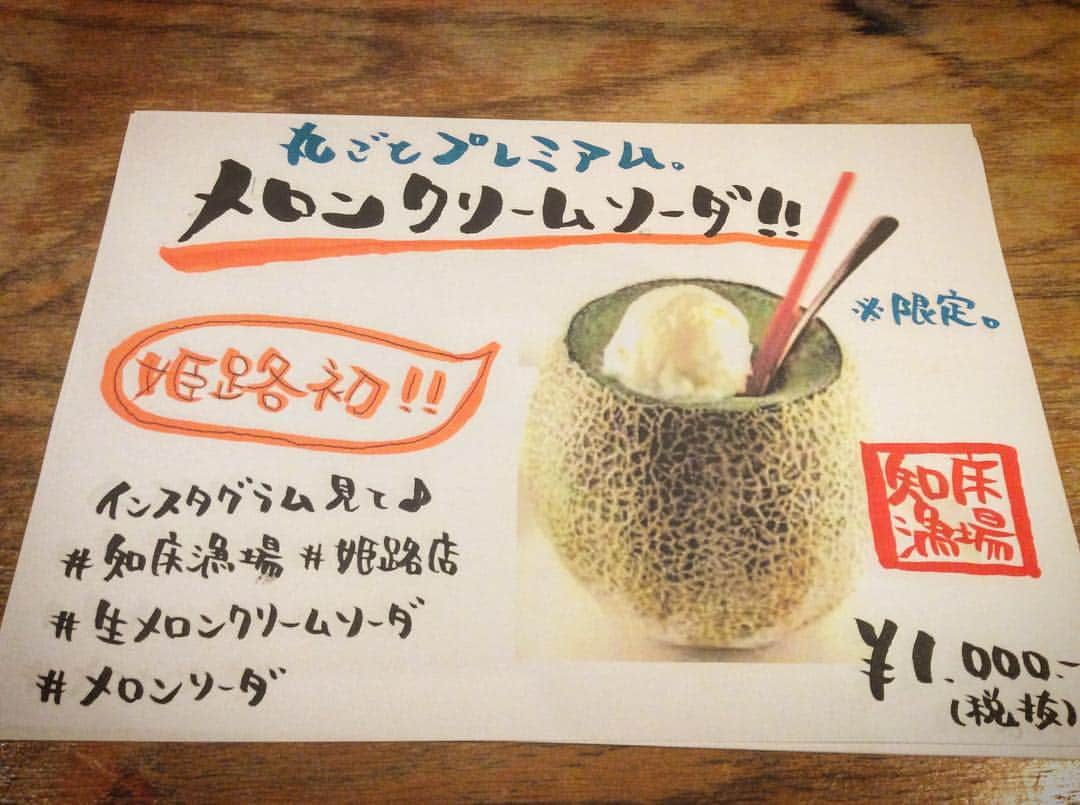 丸ごとプレミアム。
メロンクリームソーダ!!
※限定。
姫路初!!
インスタグラム見て♪
#知床漁場 #姫路店
#生メロンクリームソーダ
#メロンソーダ
知床
漁場
¥1.000.-
(税抜)